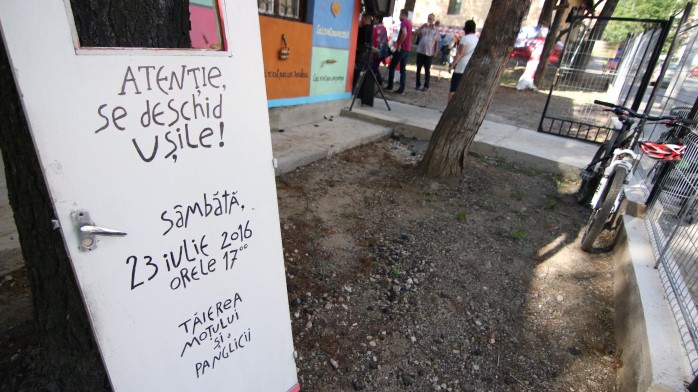 ATENȚIE,
se deschid
ușile!
SÂMBĂTĂ,
23 iULIE 2016
ORELE 17⁰⁰
TĂIEREA
MOȚULUI
ȘI
PANGLICII